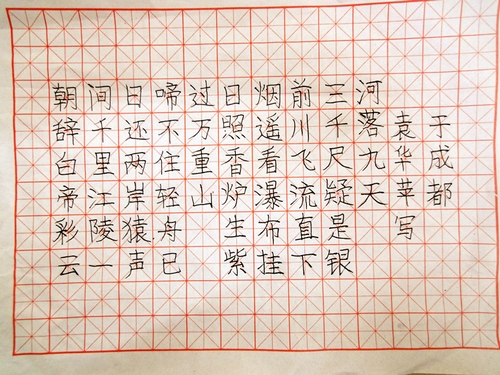 朝辞白帝彩云
间千里江陵一
日还两岸猿声
啼不住轻舟已
过万重山
日照香炉生紫
烟遥看瀑布挂
前川飞流直下
三千尺疑是银
河落九天
袁华苹写
于成都